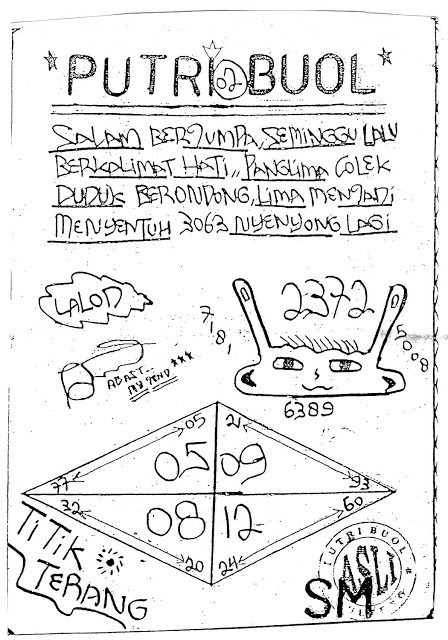 PUTRI 02 BUOL
SALAM BERJUMPA, SEMINGGU LALU
BERKALIMAT HATI,, PANGLIMA COLEK
DUDUK BERONDONG, LIMA MENJADI
MENYENTUH 3063 NYENYONG LAGI
LALOD
2372
7,8,
5008
6389
05 21
05 09
77 93
32 60
08 12
20 24
TITIK
TERANG
PUTRI BUOL
ASLI
SM